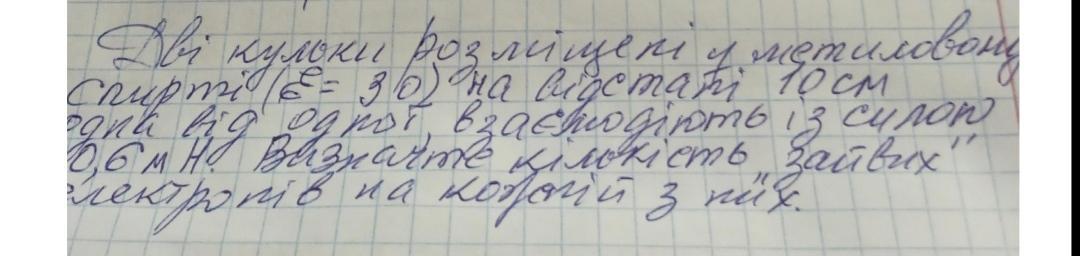 Дві кульки розміщені у метиловому
спирті (ε = 30) на відстані 10 см
одна від одної, взаємодіють із силою
0,6 мН. Визначте кількість „зайвих"
електронів на кожній з них.